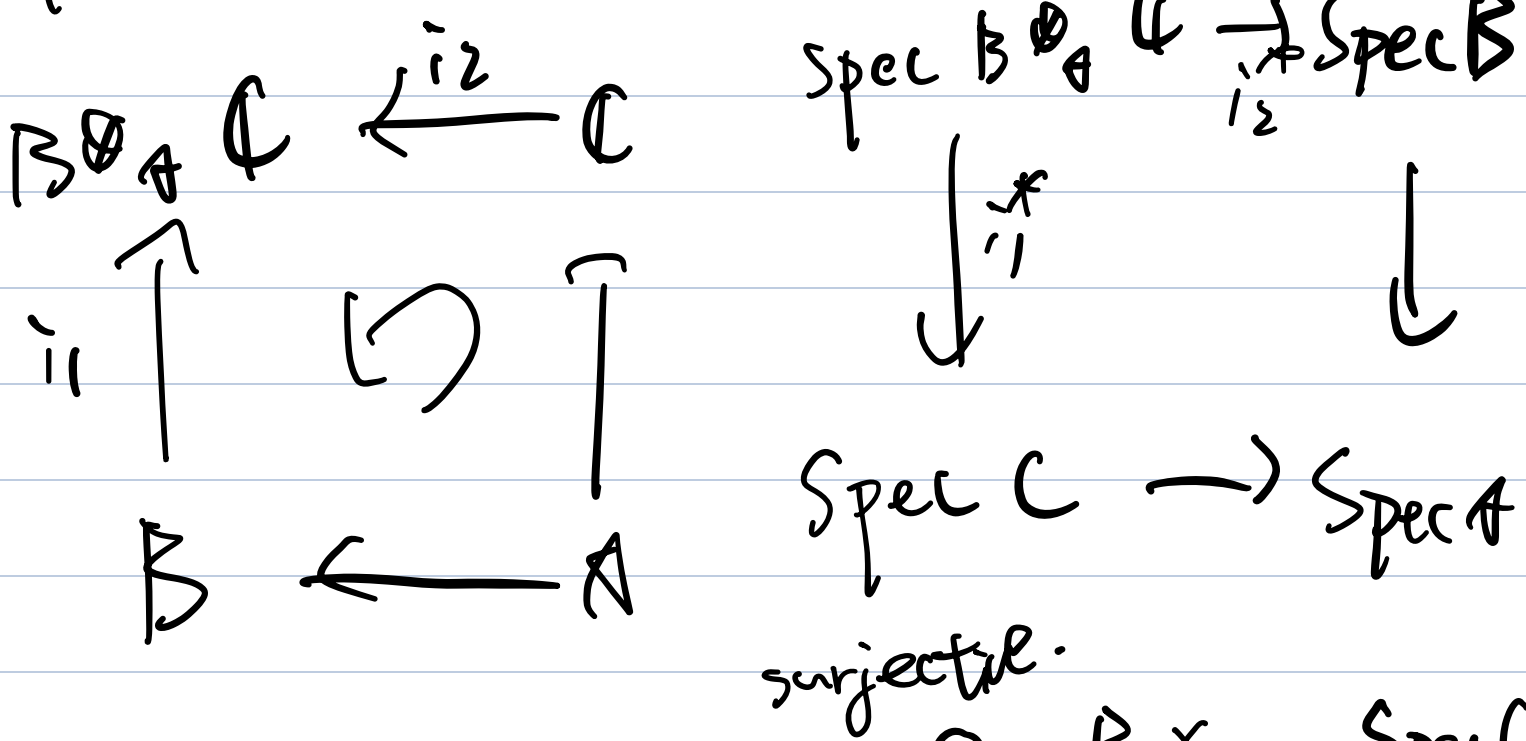 B ⊗_A ℂ ← i2 ℂ
i1
B ← A
Spec B ⊗_A ℂ → Spec B
i2*
i1*
Spec C → Spec A
surjective.